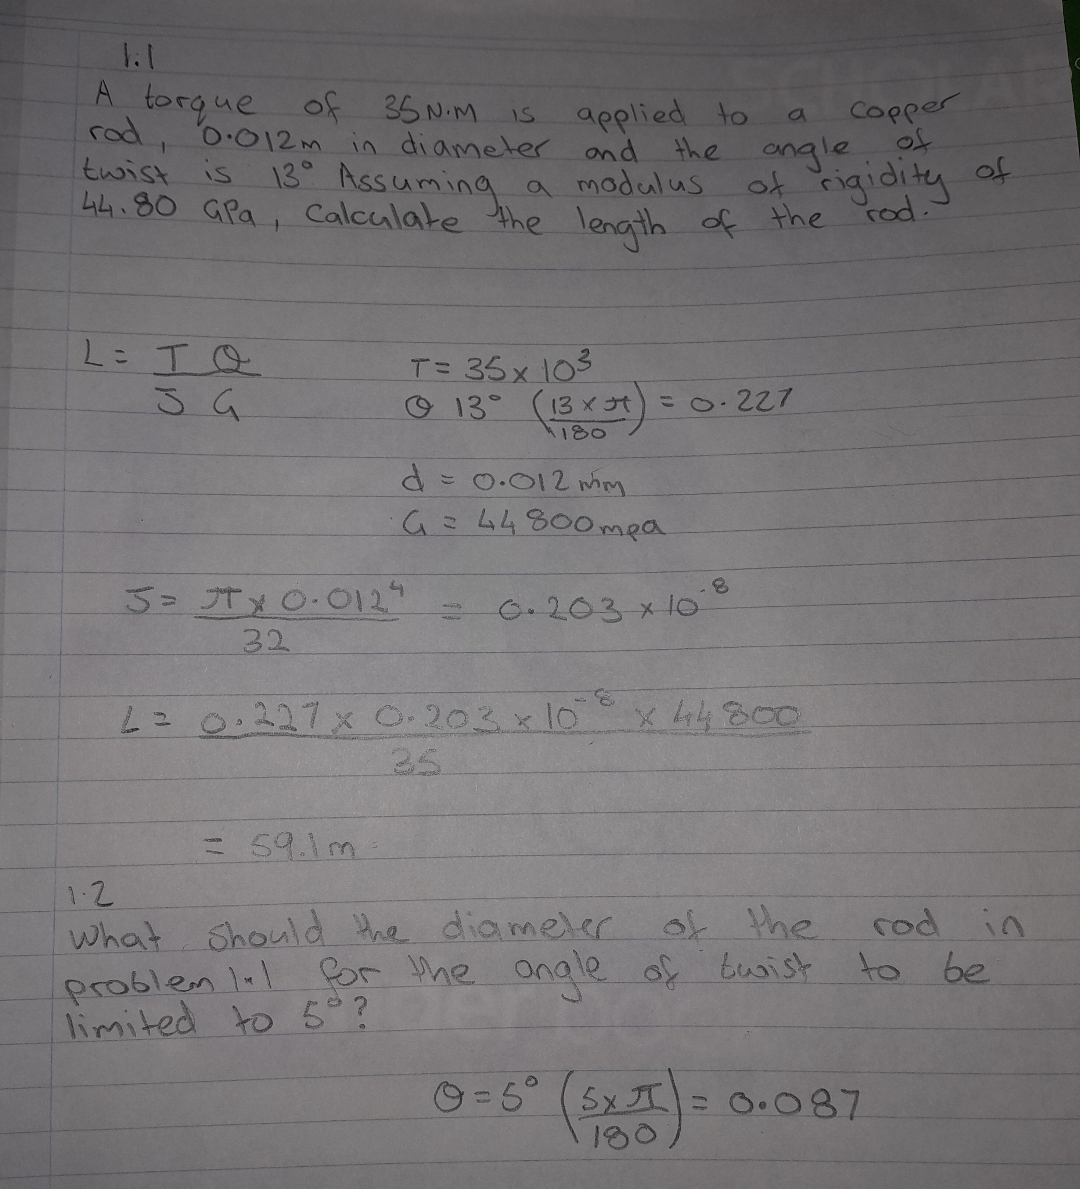 1.1
A torque of 35 N.M is applied to a copper
rod, 0.012m in diameter and the angle of
twist is 13° Assuming a modulus of rigidity of
44.80 GPa, Calculate the length of the rod.
L = T θ
J G
T = 35 x 10³
θ 13° (13 x π / 180) = 0.227
d = 0.012 mm
G = 44 800 mpa
J = π x 0.012⁴ / 32 = 0.203 x 10⁻⁸
L = 0.227 x 0.203 x 10⁻⁸ x 44 800
35
= 59.1m
1.2
What should the diameter of the rod in
problem 1.1 for the angle of twist to be
limited to 5°?
θ = 5° (5 x π / 180) = 0.087